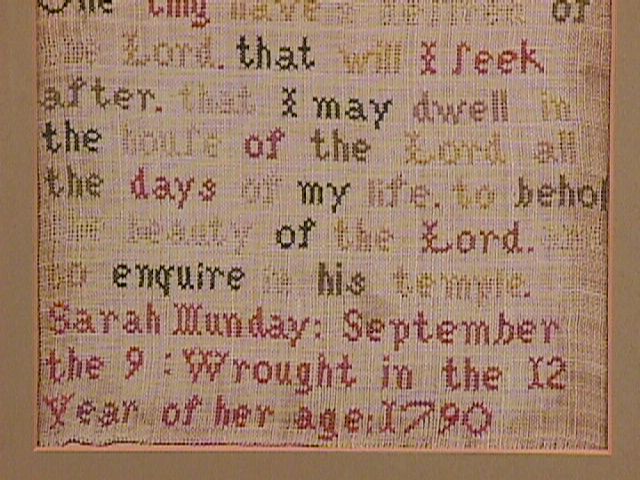 One ting have I desired of
the Lord. that will I ſeek
after. that I may dwell in
the houſe of the Lord all
the days of my life. to behol
the beauty of the Lord. an
to enquire in his temple.
Sarah Munday: September
the 9 : Wrought in the 12
Year of her age: 1790